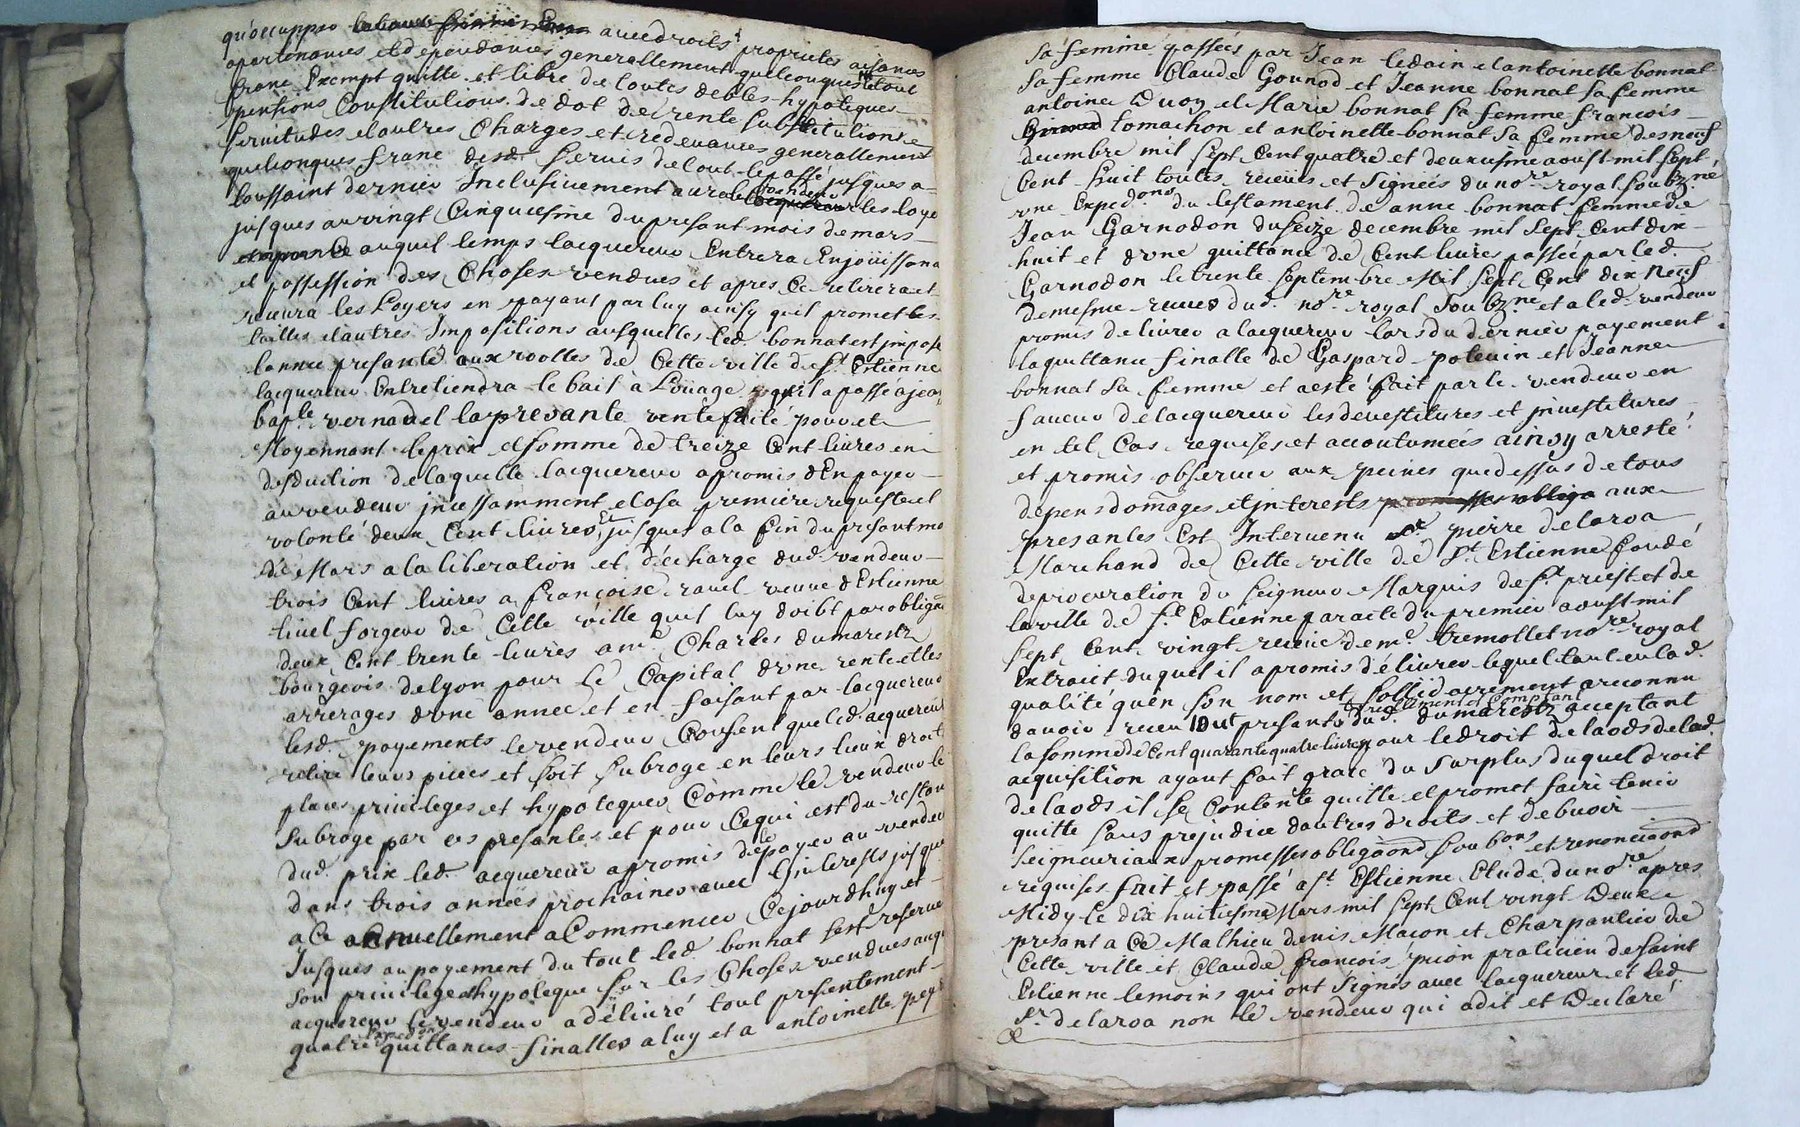 qu'occuppe avec droits proprietes aisances
apartenances et dependances generallement quelconques le tout
franc Exempt quitte et libre de toutes debtes hypoteques
pentions Constitutions de dot de rente substitutions
servitudes et autres Charges et redevances generallement
quelconques franc desd. servis de tout le passé jusques a
toussaint dernier Inclusivement aura le vendeur les loye
jusques au vingt Cinquiesme du presant mois de mars
auquel temps lacquereur Entrera En jouissan
et possession des Choses vendues et apres Ce retirera et
recevra les Loyers en payant par luy ainsy quil promet les
tailles et autres Impositions ausquelles led. bonnat est impose
lannee presante aux roolles de Cette ville de St Estienne
lacquereur Entretiendra le bail à Loüage quil a passé a jean
bapte vernadel la presante vente faite pour et
Moyennant le prix et somme de treize Cent livres en
desduction de laquelle lacquereur a promis dEn payer
au vendeur incessamment et a sa premiere requeste et
volonté deux Cent livres Et jusques a la fin du presant mo
de Mars a la liberation et décharge dud. vendeur
trois Cent livres a françoise ravel veuve dEstienne
tivel forgeur de Cette ville quil luy doibt par obliga
deux Cent trente livres a mr Charles dumarestz
bourgeois de lyon pour le Capital dune rente et les
arrerages dune année et en faisant par lacquereur
lesd. payements le vendeur Consent que led. acquereur
retire leurs pieces et soit subrogé en leurs lieux droit
places privileges et hypoteques Comme le vendeur le
subroge par ces presantes et pour Ce qui est du restan
dud. prix led. acquereur a promis de le payer au vendeur
dans trois années prochaines avec Interests jusque
a Ce annuellement a Commencer Cejourdhuy et
Jusques au payement du tout led. bonnat sest reservé
son privilege et hypoteque sur les Choses vendues auqu
acquereur le vendeur a délivré tout presentement
quatre quittances finalles a luy et a antoinette
sa femme passées par Jean ledoin et antoinette bonnat
sa femme Claude Gounod et Jeanne bonnat sa femme
antoine Duon et Marie bonnat sa femme francois
tomachon et antoinette bonnat sa femme des neuf
decembre mil sept Cent quatre et deuxiesme aoust mil sept
Cent huit toutes receues et signées du nore royal soubz.né
une Expedons du testament de anne bonnat femme de
Jean Garnodon du seize decembre mil sept Cent dix
huit et dune quittance de Cent livres passée par led.
Garnodon le trente septembre Mil sept Cent dix Neuf
de mesme receues dud. nore royal soubz.ne et a led. vendeur
promis de livrer a lacquereur lors du dernier payement
la quittance finalle de Gaspard potevin et Jeanne
bonnat sa femme et a esté fait par le vendeur en
faveur de lacquereur les devestitures et investitures
en tel Cas requises et accoutumées ainsy arresté
et promis observer aux peines que dessus de tous
depens domages et Interests promesses obliga aux
presantes Est Intervenu sr pierre delaroa
Marchand de Cette ville de St Estienne fondé
de procuration du seigneur Marquis de St priest et de
la ville de St Estienne par acte du premier aoust mil
sept Cent vingt receüe de me tremollet nore royal
Extrait duquel il a promis délivrer lequel tant en lad.
qualité quen son nom et sollidairement a reconnu
reellement et Comptant
davoir receu tout presant dud. dumarestz acceptant
la somme de Cent quarante quatre livres pour le droit de laods de lad.
acquisition ayant fait grace du surplus duquel droit
de laods il se Contente quitte et promet faire tenir
quitte sans prejudice dautres droits et debvoir
seigneuriaux promesses obligaond soubons et renonciaond
requises fait et passé a St Estienne Etude du nore apres
Midy le dix huitiesme Mars mil sept Cent vingt deux
presant a Ce Mathieu denis Macon et Charpantier de
Cette ville et Claude francois pion praticien de saint
Estienne temoins qui ont signés avec lacquereur et led
sr. delaroa non le vendeur qui a dit et Declaré